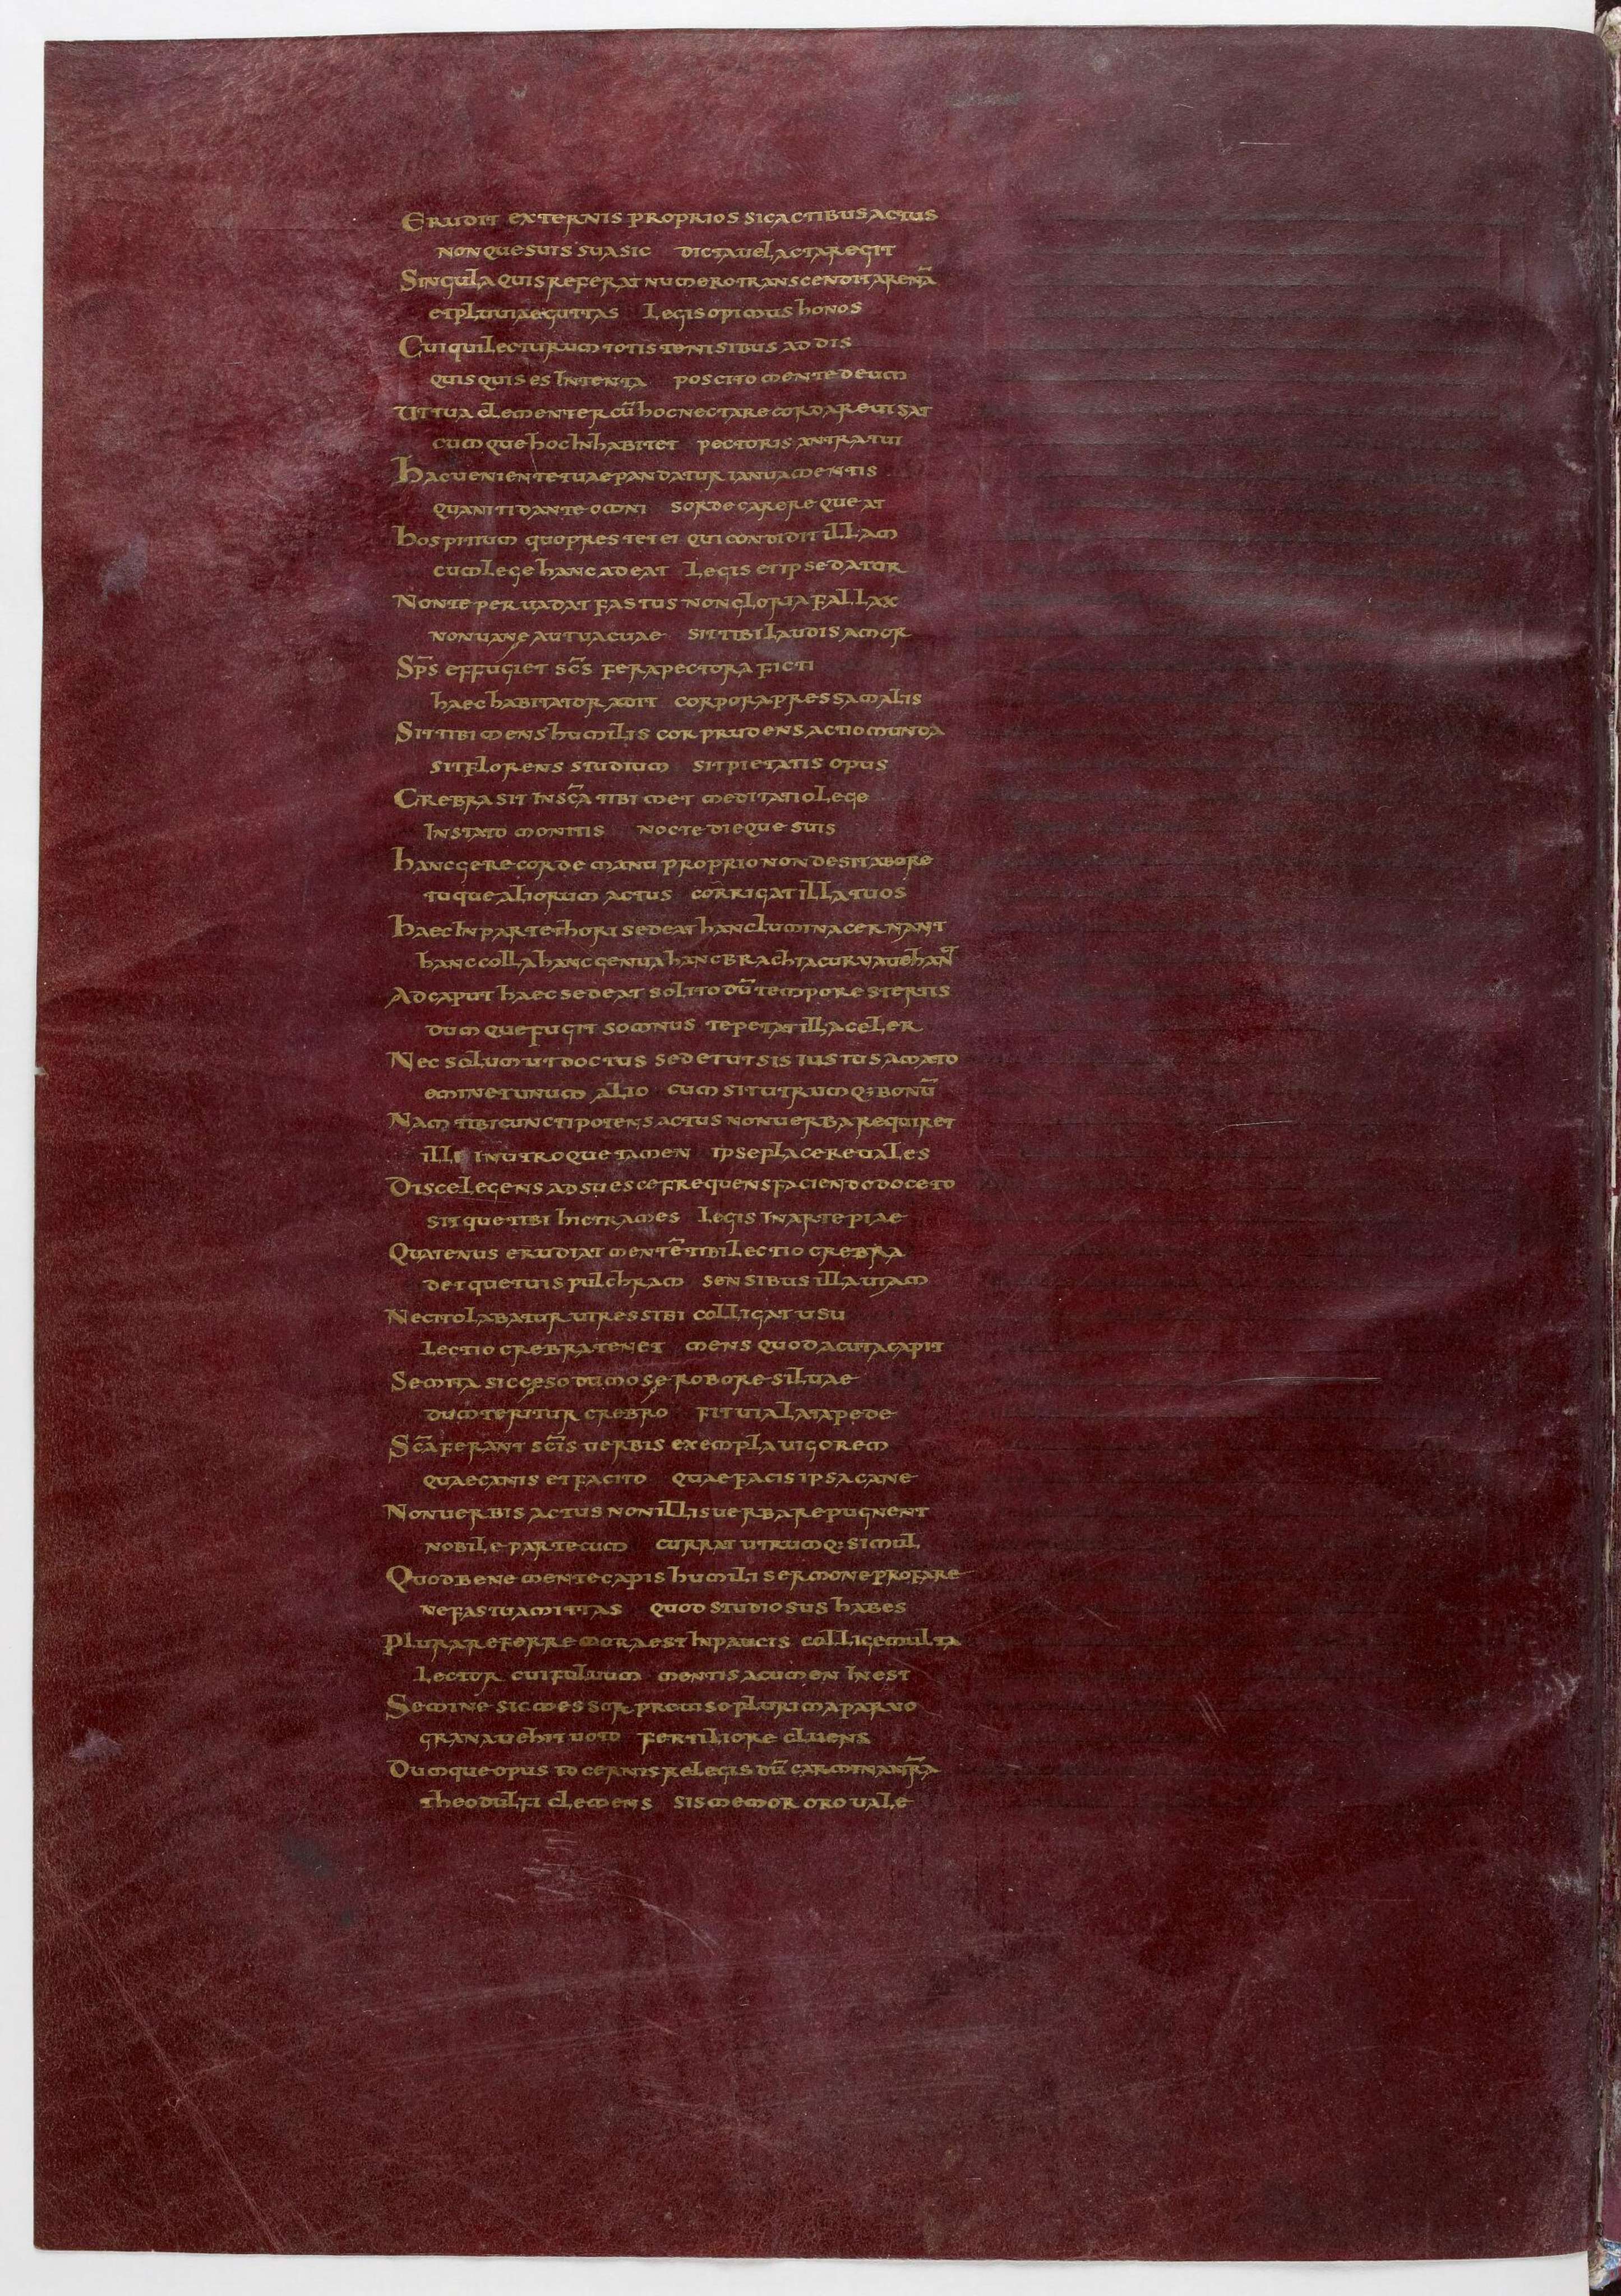 Erudit externis proprios sic actibus actus
non que suis sua sic dicta vel acta regit
Singula quis referat numero transcendit arenā
et pluviae guttas legis opimus honos
Cui qui lecturum totis te nisibus addis
quisquis es intenta poscito mente deum
Ut tua clementer cū hoc nectare corda revisat
cumque hoc inhabitet pectoris antra tui
hac veniente tuae pandatur ianua mentis
quaniti dante omni sorde carere queat
hospitium quo prestet ei qui condidit illam
cum lege hanc adeat legis et ipse dator
Non te pervadat fastus non gloria fallax
non vanae aut vacuae sit tibi laudis amor
Sp̄s effugiet sc̄s fera pectora ficti
haec habitator adit corpora pressa malis
Sit tibi mens humilis cor prudens actio munda
sit florens studium sit pietatis opus
Crebra sit in sc̄a tibimet meditatio lege
Instato monitis nocte dieque suis
hanc gere corde manu proprio non desit ab ore
tuque aliorum actus corrigat illa tuos
haec in parte thori sedeat hanc lumina cernant
hanc colla hanc genua hanc brachia curva vehant
Ad caput haec sedeat solito dū tempore stertis
dumque fugit somnus te petat illa celer
Nec solum ut doctus sed et ut sis iustus amato
eminet unum alio cum sit utrumq; bonū
Nam tibi cunctipotens actus non verba requiret
illi in utroque tamen ipse placere vales
Disce legens adsuesce frequens faciendo doceto
sitque tibi hic trames legis in arte piae
Quatenus erudiat mentē tibi lectio crebra
detque tuis pulchram sensibus illa viam
Nec cito labatur vires sibi colligat usu
lectio crebra tenet mens quod acuta capit
Semita sic caeso dumosae robore silvae
dum teritur crebro fit via lata pede
Sc̄a ferant sc̄is verbis exempla vigorem
quae canis et facito quae facis ipsa cane
Non verbis actus non illis verba repugnent
nobile par tecum currat utrumq; simul
Quod bene mente capis humili sermone profare
ne fastu amittas quod studiosus habes
Plura referre mora est in paucis collige multa
lector cui fulvum mentis acumen inest
Semine sic messor promiso plurima parvo
grana vehit voto fertiliore cluens
Dumque opus to cernis relegis dū carmina nr̄a
theodulfi clemens sis memor oro vale